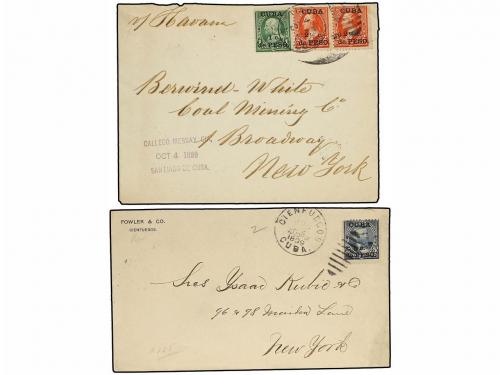 v/ Havana
CUBA
de PESO.
CUBA
de PESO.
CUBA
de PESO.
Berwind-White
Coal Mining Co
1 Broadway
New York
CALLEGO, MESSAY, Co.
OCT 4 1899
SANTIAGO DE CUBA.
FOWLER & CO.
CIENFUEGOS.
2
CIENFUEGOS
1899
CUBA.
CUBA
de PESO
Sres Isaac Kubie & Co
96 & 98 Maiden Lane
New York